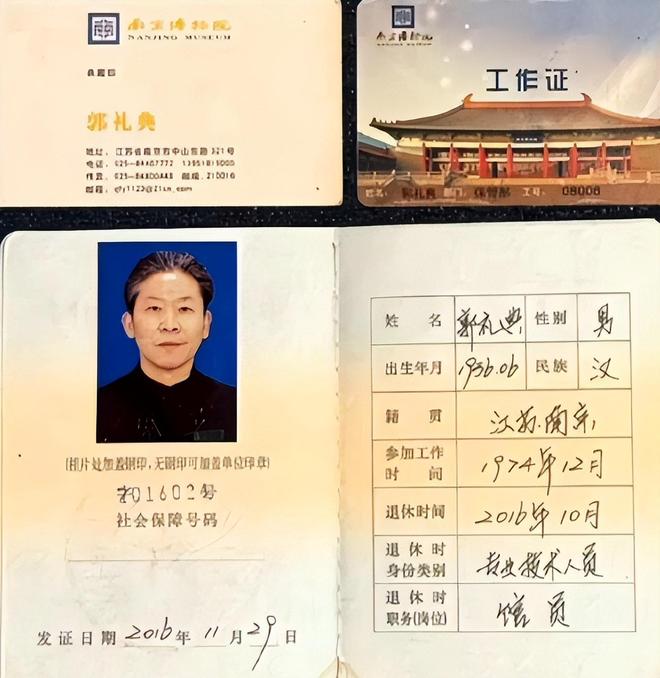 南京博物院
NANJING MUSEUM
典藏部
郭礼典
地址：江苏省南京市中山东路321号
电话：
传真： 邮编：210016
邮箱：
南京博物院
工作证
姓名：郭礼典 部门：保管部 工号：08008
(相片处加盖钢印，无钢印可加盖单位印章)
01602号
社会保障号码
发证日期 2016年 11月29日
姓名 郭礼典 性别 男
出生年月 1956.06 民族 汉
籍贯 江苏.南京
参加工作时间 1974年12月
退休时间 2016年10月
退休时身份类别 专业技术人员
退休时职务(岗位) 馆员